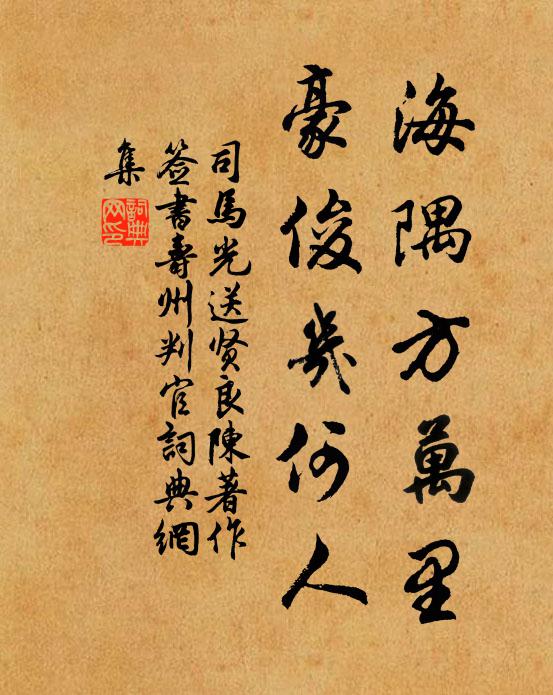 海隅方萬里
豪俊幾何人
司馬光送贤良陳著作
签書壽州判官詞典網
集
詞典
网印